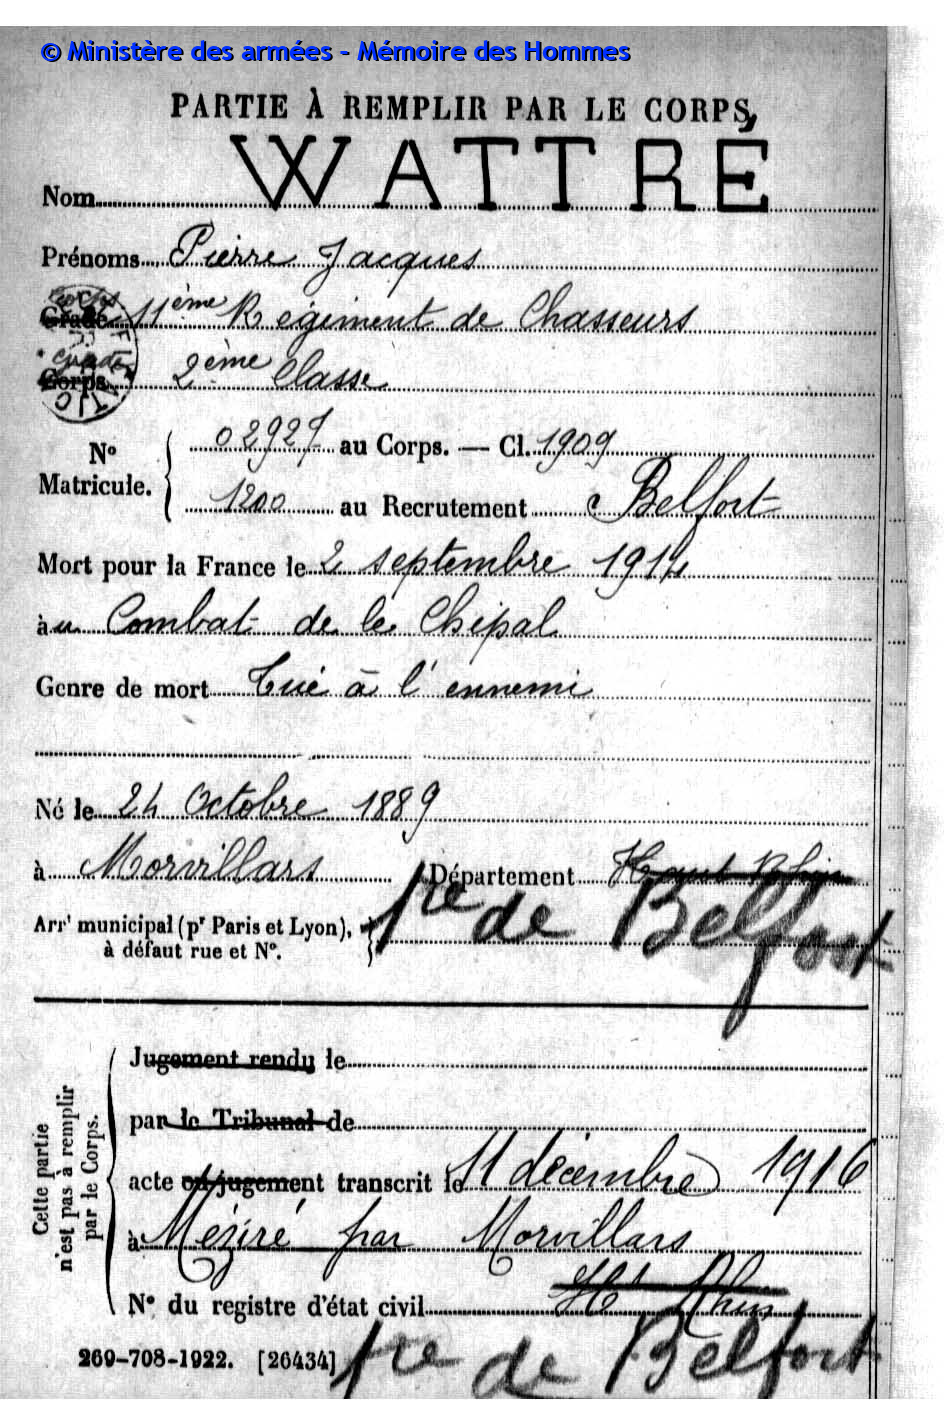 © Ministère des armées - Mémoire des Hommes
PARTIE À REMPLIR PAR LE CORPS,
Nom WATTRÉ
Prénoms Pierre Jacques
Corps
Grade 11ème Régiment de Chasseurs
Grade
Corps 2ème Classe
No Matricule. { 02927 au Corps. — Cl. 1909
1200 au Recrutement à Belfort
Mort pour la France le 2 septembre 1914
àu Combat de le Chipal
Genre de mort Tué à l'ennemi
Né le 24 Octobre 1889
à Morvillars Département Haut Rhin
Arrt municipal (pr Paris et Lyon), à défaut rue et No. } Tre de Belfort
Cette partie n'est pas à remplir par le Corps.
Jugement rendu le
par le Tribunal de
acte ou jugement transcrit le 11 décembre 1916
à Méziré par Morvillars
No du registre d'état civil Ht Rhin
269-708-1922. [26434] Tre de Belfort